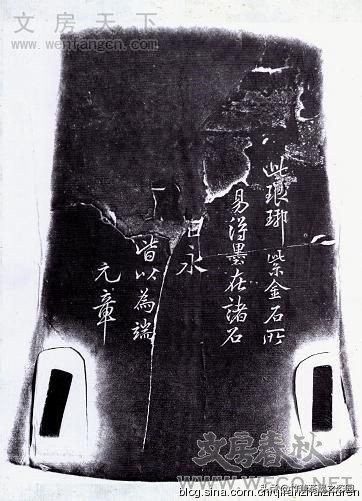 文房天下
www.wenfangcn.com
此琅琊紫金石所
易得墨在諸石
永
皆以為端
元章
文房春秋
blog.sina.com.cn/qinfanzhaizhuren